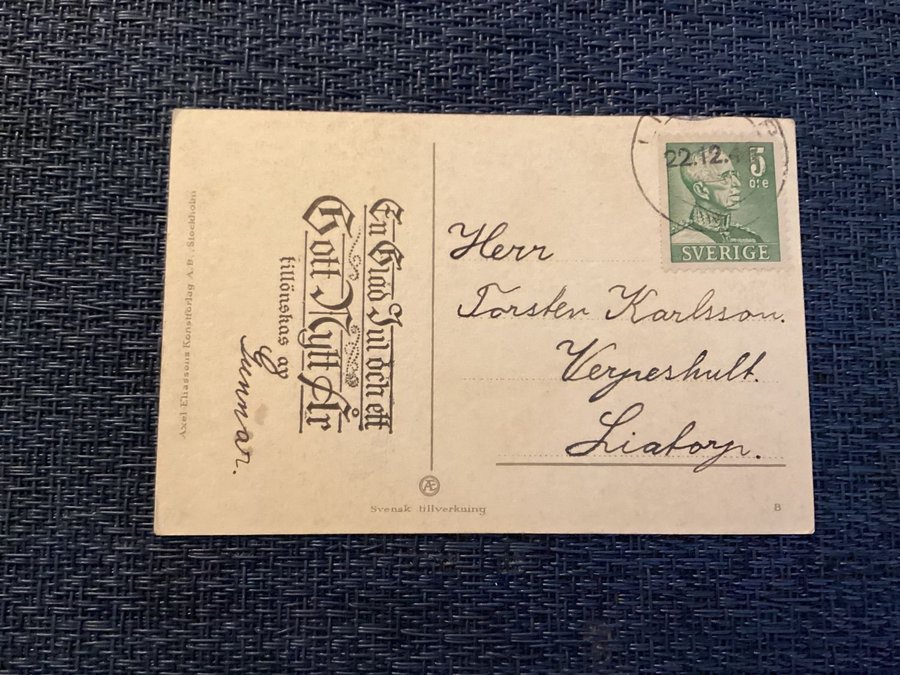 Axel Eliassons Konstförlag A.B., Stockholm
En Glad Jul och ett
Gott Nytt År
tillönskas av
Gunnar.
22.12.
5
öre
SVERIGE
Herr
Torsten Karlsson.
Verpeshult.
Liatorp.
Æ
Svensk tillverkning
B